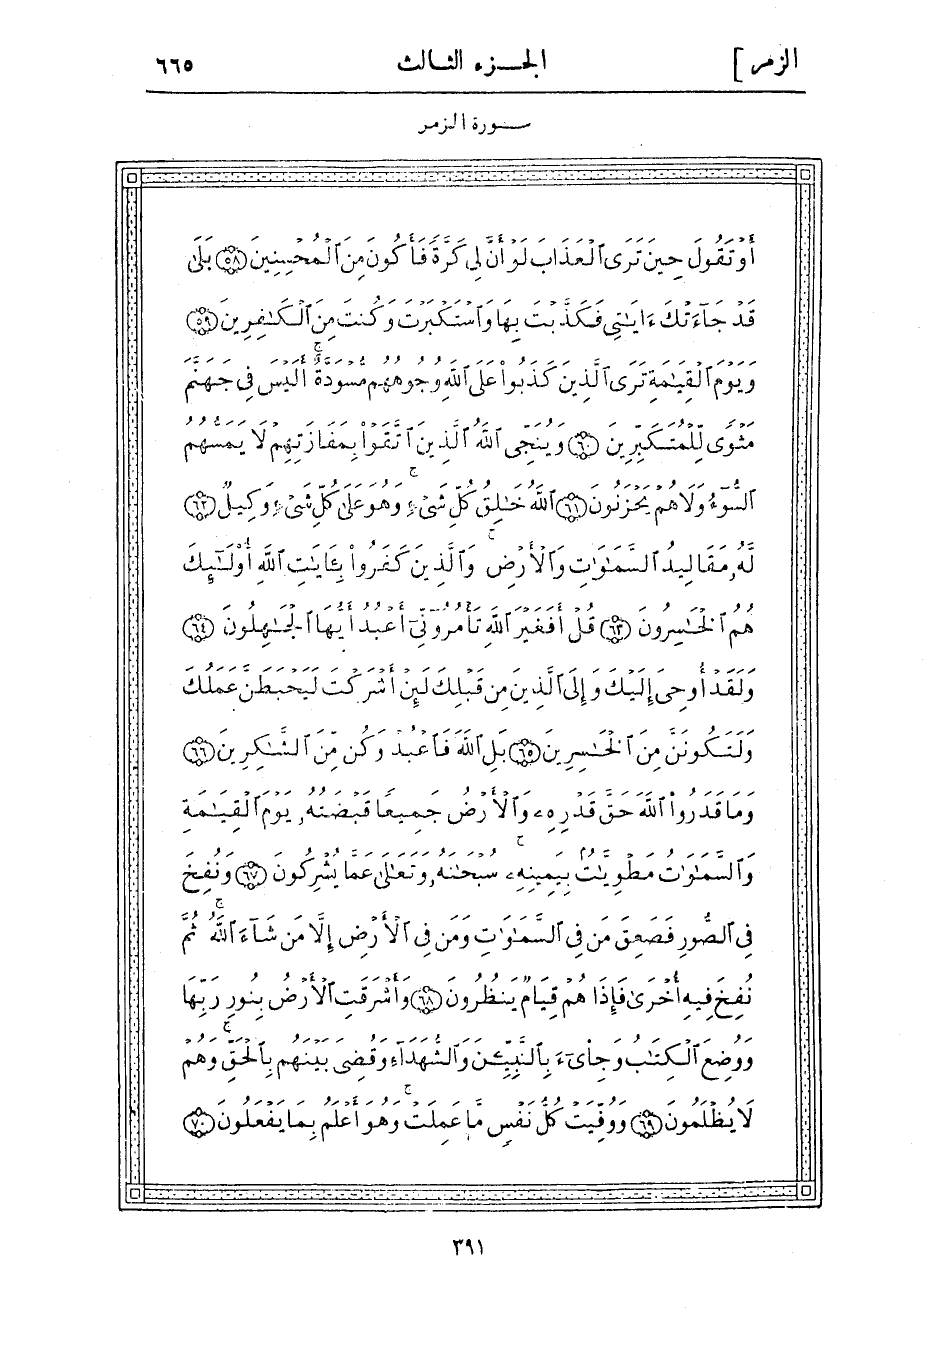 الزمر ]
الجزء الثالث
٦٦٥
سورة الزمر
أَوْ تَقُولَ حِينَ تَرَى ٱلْعَذَابَ لَوْ أَنَّ لِى كَرَّةً فَأَكُونَ مِنَ ٱلْمُحْسِنِينَ ﴿٥٨﴾ بَلَىٰ
قَدْ جَآءَتْكَ ءَايَـٰتِى فَكَذَّبْتَ بِهَا وَٱسْتَكْبَرْتَ وَكُنتَ مِنَ ٱلْكَـٰفِرِينَ ﴿٥٩﴾
وَيَوْمَ ٱلْقِيَـٰمَةِ تَرَى ٱلَّذِينَ كَذَبُوا۟ عَلَى ٱللَّهِ وُجُوهُهُم مُّسْوَدَّةٌ ۚ أَلَيْسَ فِى جَهَنَّمَ
مَثْوًى لِّلْمُتَكَبِّرِينَ ﴿٦٠﴾ وَيُنَجِّى ٱللَّهُ ٱلَّذِينَ ٱتَّقَوْا۟ بِمَفَازَتِهِمْ لَا يَمَسُّهُمُ
ٱلسُّوٓءُ وَلَا هُمْ يَحْزَنُونَ ﴿٦١﴾ ٱللَّهُ خَـٰلِقُ كُلِّ شَىْءٍ ۖ وَهُوَ عَلَىٰ كُلِّ شَىْءٍ وَكِيلٌ ﴿٦٢﴾
لَّهُۥ مَقَالِيدُ ٱلسَّمَـٰوَٰتِ وَٱلْأَرْضِ ۗ وَٱلَّذِينَ كَفَرُوا۟ بِـَٔايَـٰتِ ٱللَّهِ أُو۟لَـٰٓئِكَ
هُمُ ٱلْخَـٰسِرُونَ ﴿٦٣﴾ قُلْ أَفَغَيْرَ ٱللَّهِ تَأْمُرُوٓنِّىٓ أَعْبُدُ أَيُّهَا ٱلْجَـٰهِلُونَ ﴿٦٤﴾
وَلَقَدْ أُوحِىَ إِلَيْكَ وَإِلَى ٱلَّذِينَ مِن قَبْلِكَ لَئِنْ أَشْرَكْتَ لَيَحْبَطَنَّ عَمَلُكَ
وَلَتَكُونَنَّ مِنَ ٱلْخَـٰسِرِينَ ﴿٦٥﴾ بَلِ ٱللَّهَ فَٱعْبُدْ وَكُن مِّنَ ٱلشَّـٰكِرِينَ ﴿٦٦﴾
وَمَا قَدَرُوا۟ ٱللَّهَ حَقَّ قَدْرِهِۦ وَٱلْأَرْضُ جَمِيعًا قَبْضَتُهُۥ يَوْمَ ٱلْقِيَـٰمَةِ
وَٱلسَّمَـٰوَٰتُ مَطْوِيَّـٰتٌۢ بِيَمِينِهِۦ ۚ سُبْحَـٰنَهُۥ وَتَعَـٰلَىٰ عَمَّا يُشْرِكُونَ ﴿٦٧﴾ وَنُفِخَ
فِى ٱلصُّورِ فَصَعِقَ مَن فِى ٱلسَّمَـٰوَٰتِ وَمَن فِى ٱلْأَرْضِ إِلَّا مَن شَآءَ ٱللَّهُ ۖ ثُمَّ
نُفِخَ فِيهِ أُخْرَىٰ فَإِذَا هُمْ قِيَامٌ يَنظُرُونَ ﴿٦٨﴾ وَأَشْرَقَتِ ٱلْأَرْضُ بِنُورِ رَبِّهَا
وَوُضِعَ ٱلْكِتَـٰبُ وَجِا۟ىٓءَ بِٱلنَّبِيِّـۧنَ وَٱلشُّهَدَآءِ وَقُضِىَ بَيْنَهُم بِٱلْحَقِّ وَهُمْ
لَا يُظْلَمُونَ ﴿٦٩﴾ وَوُفِّيَتْ كُلُّ نَفْسٍ مَّا عَمِلَتْ وَهُوَ أَعْلَمُ بِمَا يَفْعَلُونَ ﴿٧٠﴾
٣٩١